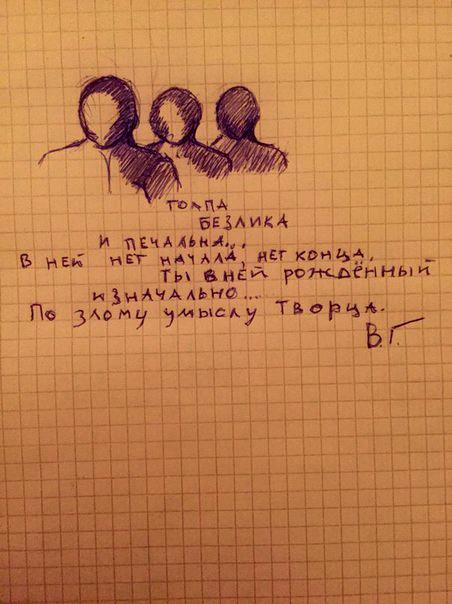 ТОЛПА
БЕЗЛИКА
И ПЕЧАЛЬНА...
В НЕЙ НЕТ НАЧАЛА, НЕТ КОНЦА.
ТЫ В НЕЙ РОЖДЁННЫЙ
ИЗНАЧАЛЬНО...
ПО ЗЛОМУ УМЫСЛУ ТВОРЦА.
В.Г.